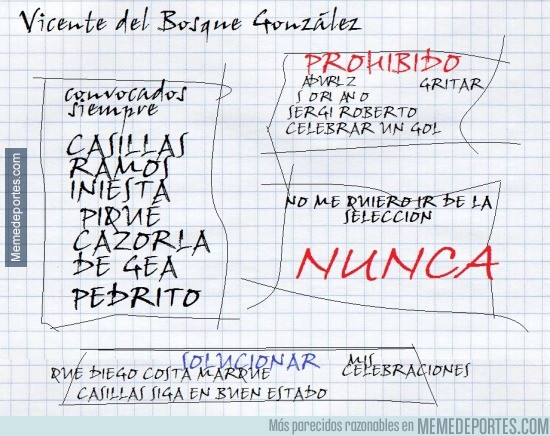 Vicente del Bosque González
convocados
siempre
CASILLAS
RAMOS
INIESTA
PIQUÉ
CAZORLA
DE GEA
PEDRITO
PROHIBIDO
ADURIZ GRITAR
SORIANO
SERGI ROBERTO
CELEBRAR UN GOL
NO ME QUIERO IR DE LA
SELECCIÓN
NUNCA
SOLUCIONAR
QUE DIEGO COSTA MARQUE
CASILLAS SIGA EN BUEN ESTADO
MIS
CELEBRACIONES
Memedeportes.com
Más parecidos razonables en MEMEDEPORTES.COM